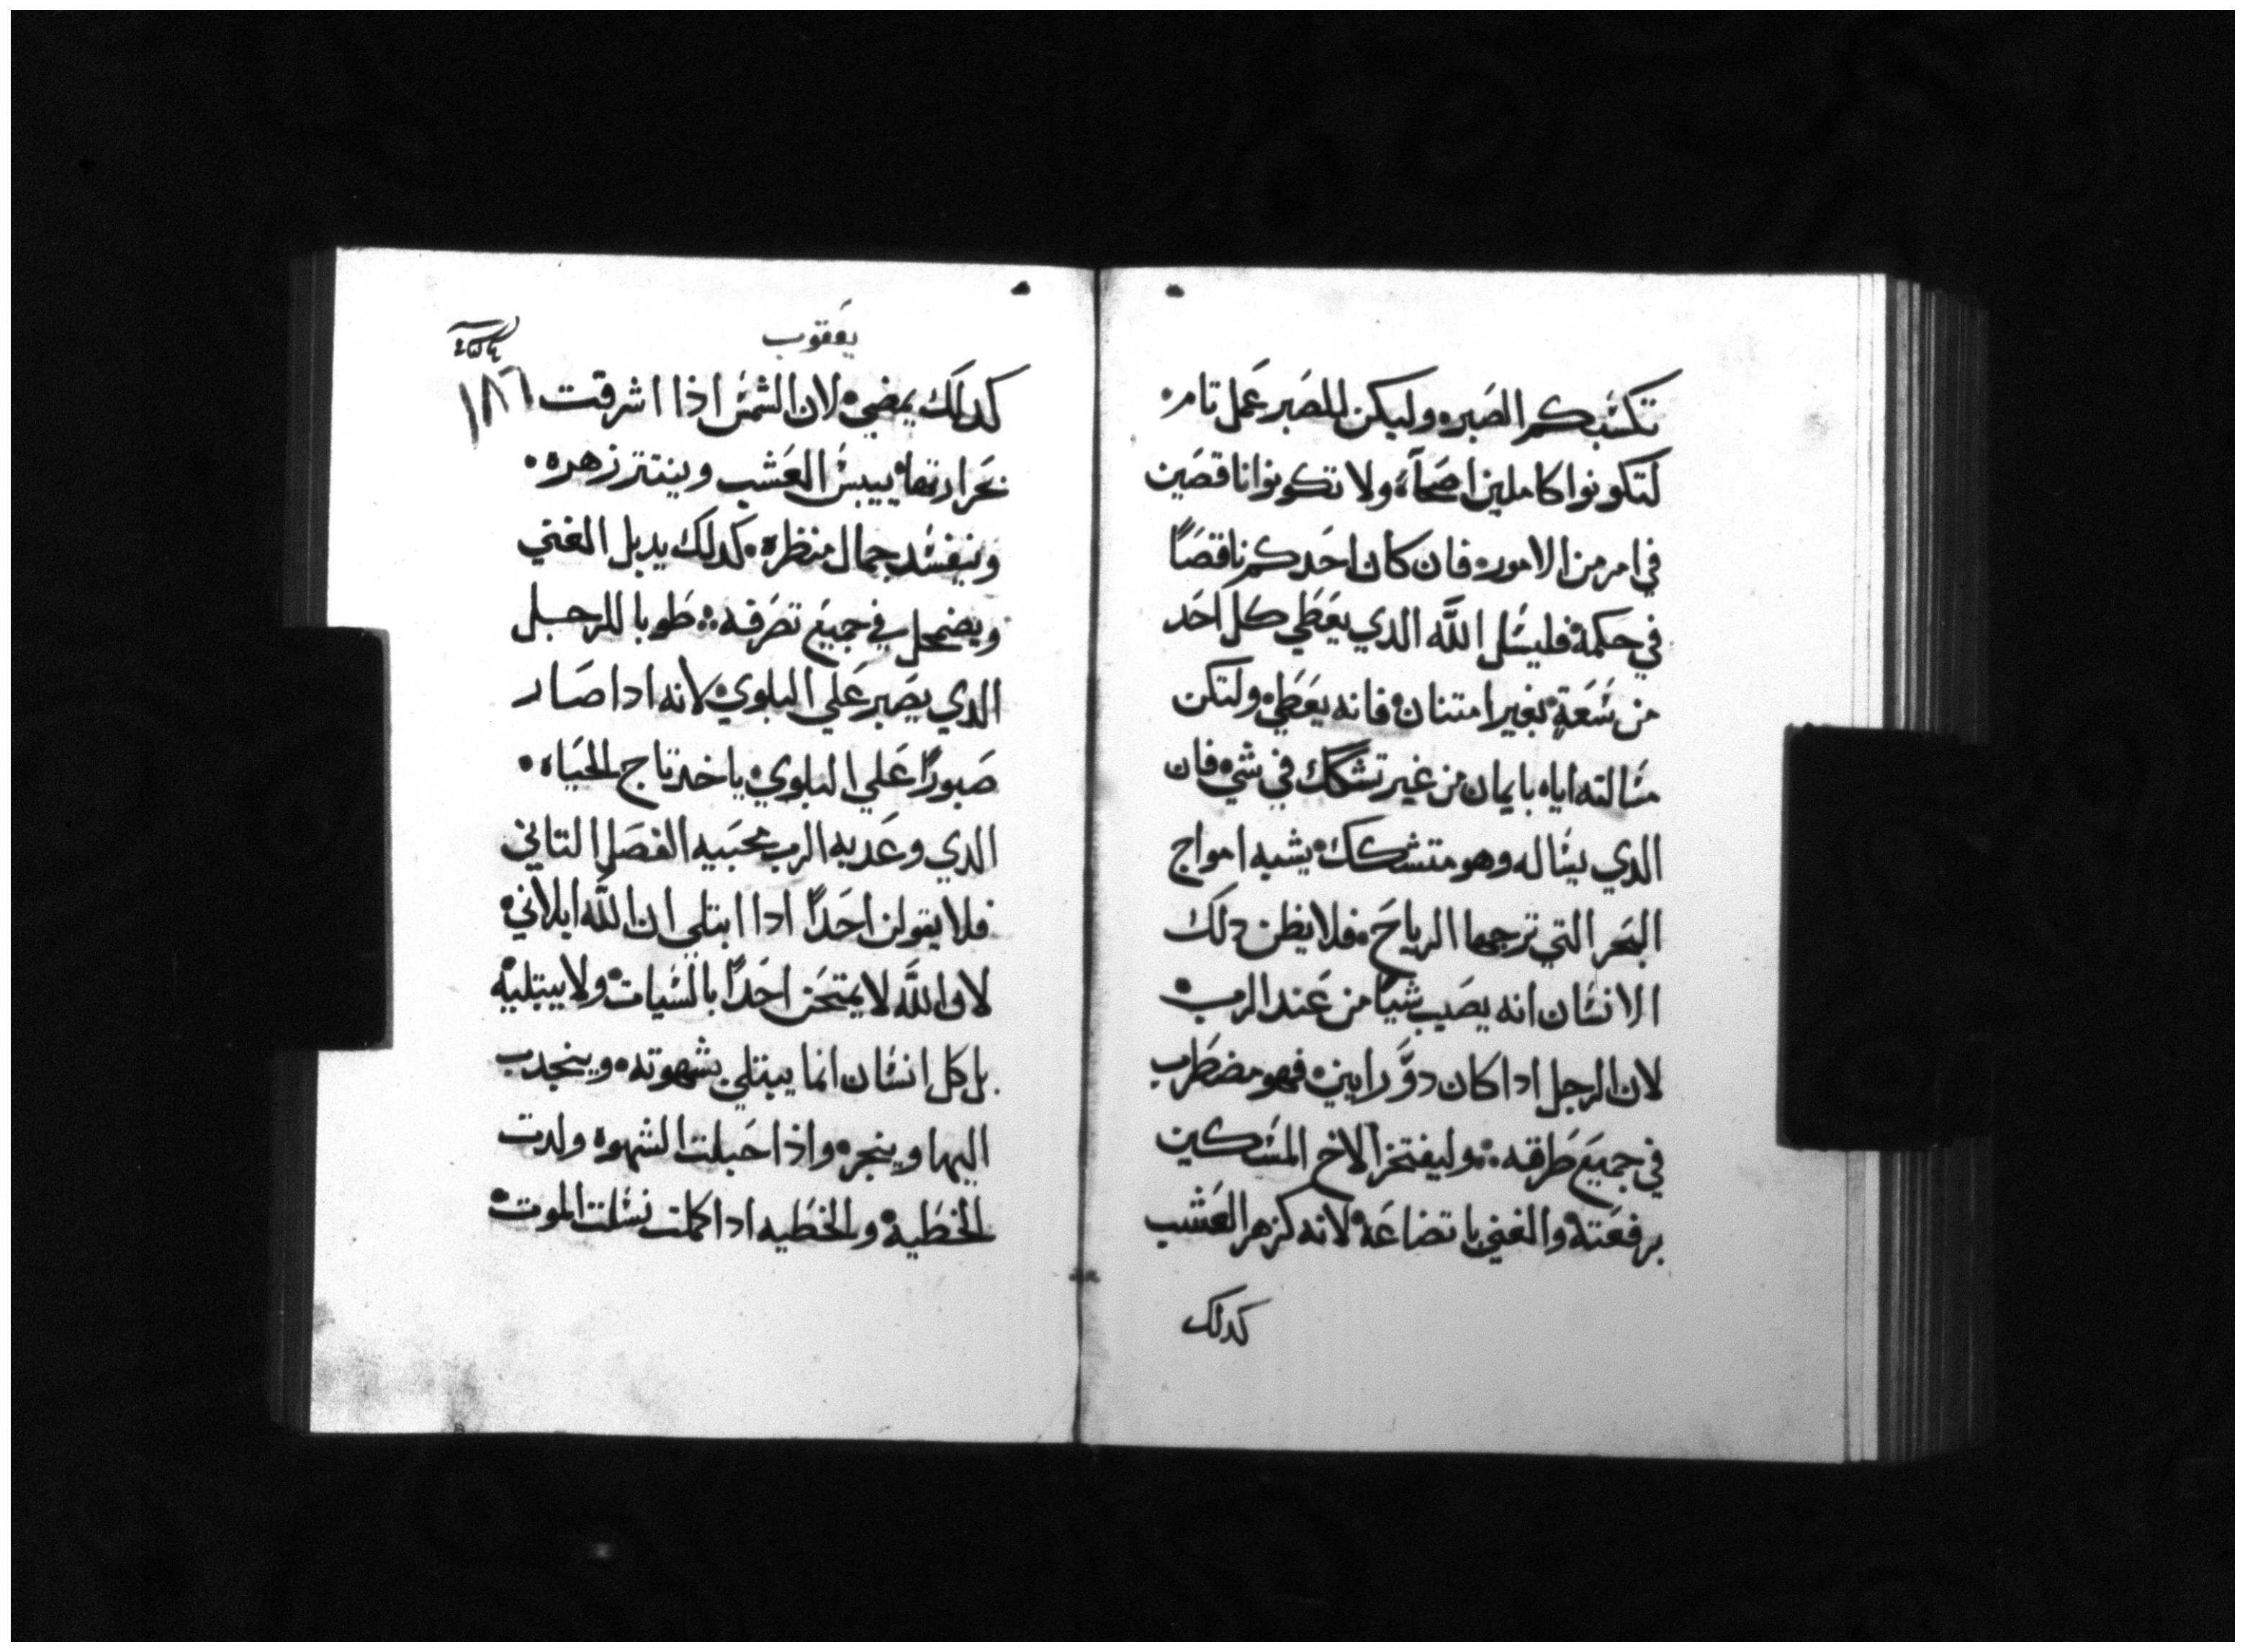 تكسبكم الصبر. وليكن للصبر عمل تام.
لتكونوا كاملين اصحآء. ولا تكونوا ناقصين
في امر من الامور. فان كان احدكم ناقصًا
في حكمة فليسل اللَّه الدي يعطي كل احد
من سعة بغير امتنان. فانه يعطي. ولتكن
مسالته اياه بايمان من غير تشكك في شي. فان
الدي يساله وهو متشكك. يشبه امواج
البحر التي ترجها الرياح. فلا يظن دلك
الانسان انه يصيب شيًا من عند الرب.
لان الرجل ادا كان دوَّ رايين. فهو مضطرب
في جميع طرقه:. وليفتخر الاخ المسكين
برفعته. والغني باتضاعه. لانه كزهر العشب
كدلك
يعقوب
١٨٦
كدلك يمضي. لان الشمس اذا اشرقت
بحرارتها. ييبس العشب وينتتر زهره.
ويفسد جمال منظره. كدلك يدبل الغني
ويضمحل في جميع تصرفه:: طوبا للرجل
الدي يصبر علي البلوي. لانه ادا صار
صبورًا علي البلوي. ياخد تاج الحياه.
الدي وعد به الرب محبيه الفصل التاني
فلا يقولن احدًا ادا ابتلي ان اللَّه ابلاني.
لان اللَّه لا يمتحن احدًا بالسيات. ولا يبتليه.
بل كل انسان انما يبتلي بشهوته. وينجدب
اليها وينجر. واذا حبلت الشهوه ولدت
الخطية. والخطيه ادا كملت نسلت الموت.